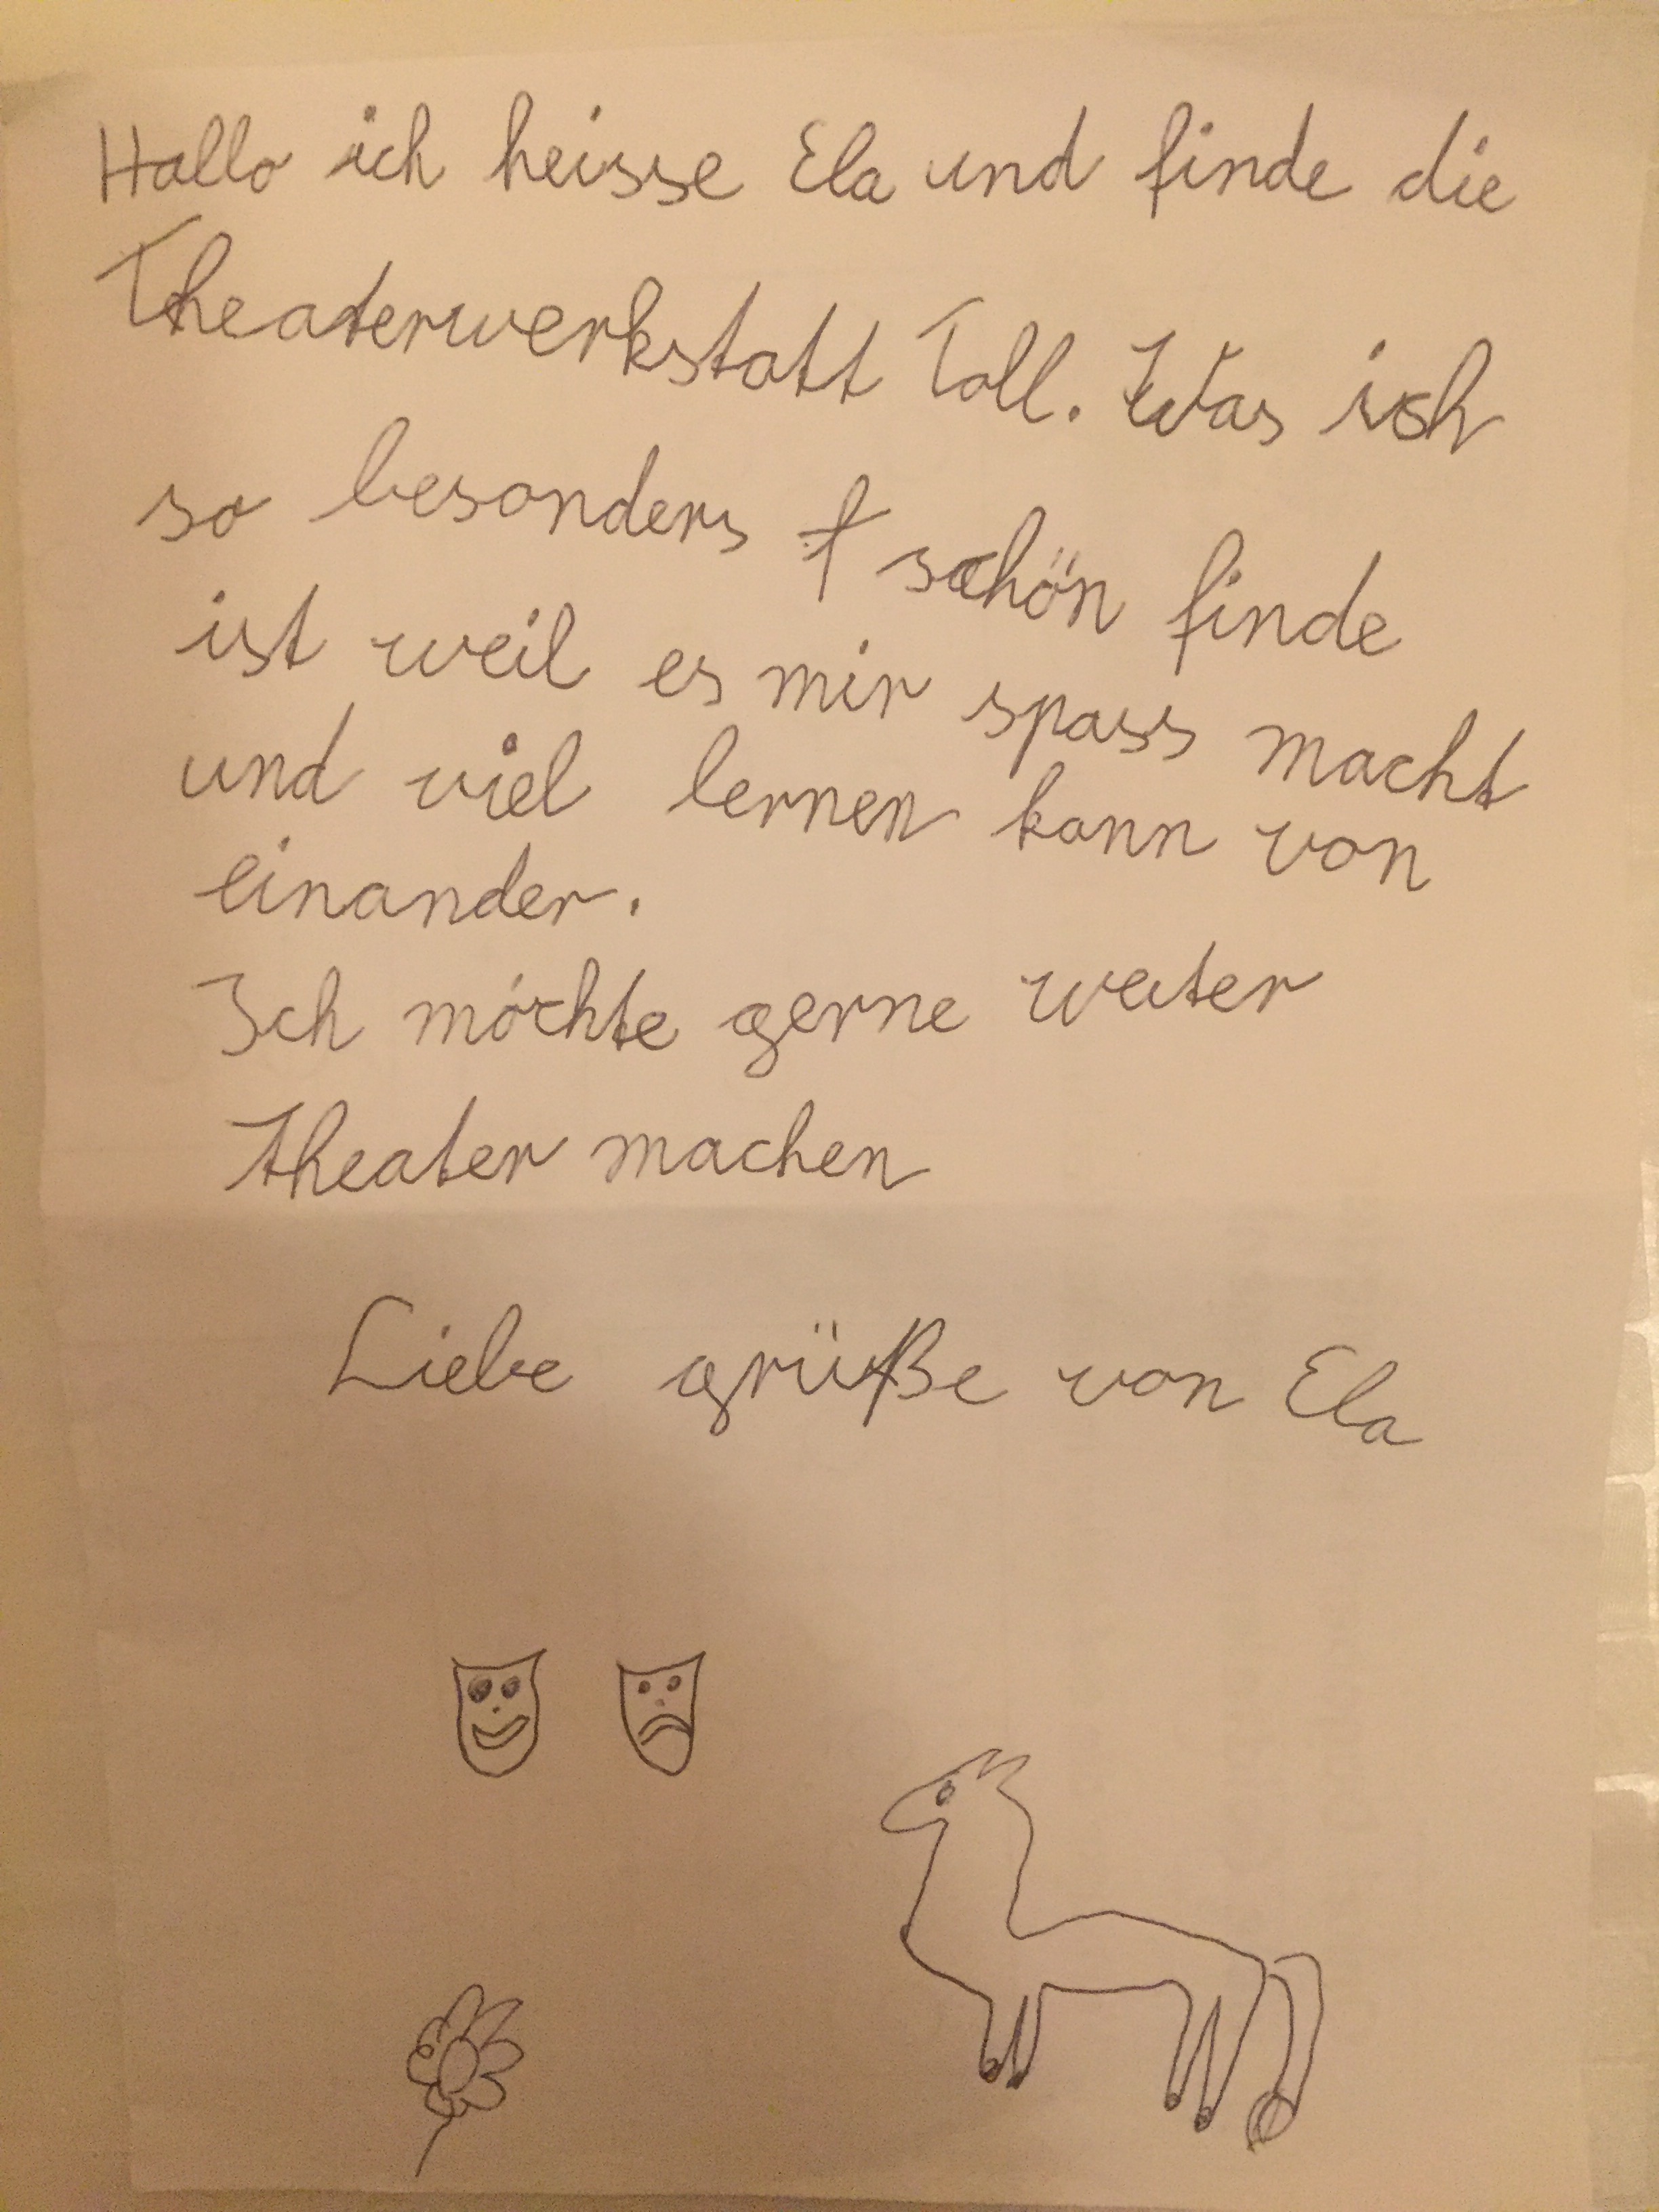 Hallo ich heisse Ela und finde die
Theaterwerkstatt Toll. Was ich
so besonders schön finde
ist weil es mir spass macht
und viel lernen kann von
einander.
Ich möchte gerne weiter
theater machen
Liebe grüße von Ela